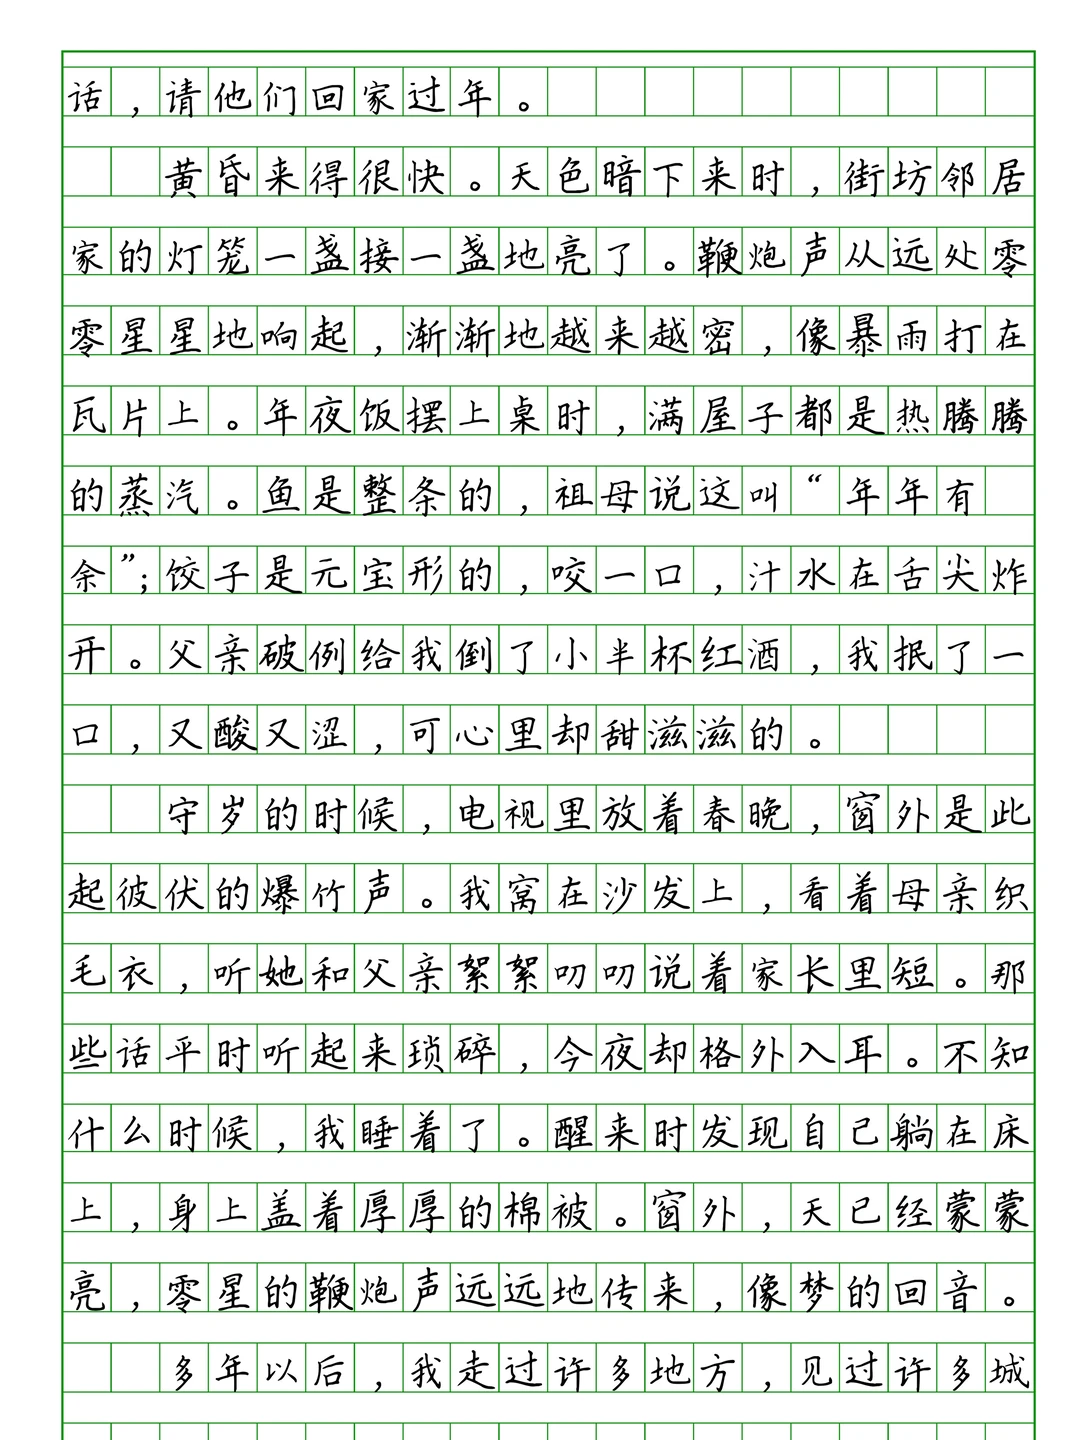 话，请他们回家过年。
黄昏来得很快。天色暗下来时，街坊邻居
家的灯笼一盏接一盏地亮了。鞭炮声从远处零
零星星地响起，渐渐地越来越密，像暴雨打在
瓦片上。年夜饭摆上桌时，满屋子都是热腾腾
的蒸汽。鱼是整条的，祖母说这叫“年年有
余”；饺子是元宝形的，咬一口，汁水在舌尖炸
开。父亲破例给我倒了小半杯红酒，我抿了一
口，又酸又涩，可心里却甜滋滋的。
守岁的时候，电视里放着春晚，窗外是此
起彼伏的爆竹声。我窝在沙发上，看着母亲织
毛衣，听她和父亲絮絮叨叨说着家长里短。那
些话平时听起来琐碎，今夜却格外入耳。不知
什么时候，我睡着了。醒来时发现自己躺在床
上，身上盖着厚厚的棉被。窗外，天已经蒙蒙
亮，零星的鞭炮声远远地传来，像梦的回音。
多年以后，我走过许多地方，见过许多城